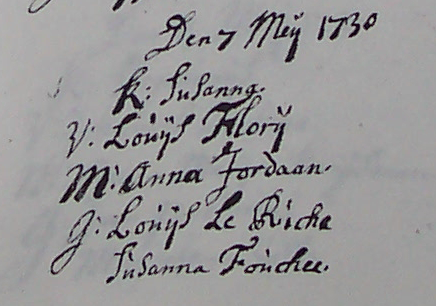 Den 7 Meÿ 1730
K: Susanna.
V: Louÿs Florÿ
M: Anna Jordaan.
G: Louÿs Le Riche
Susanna Fouchee.